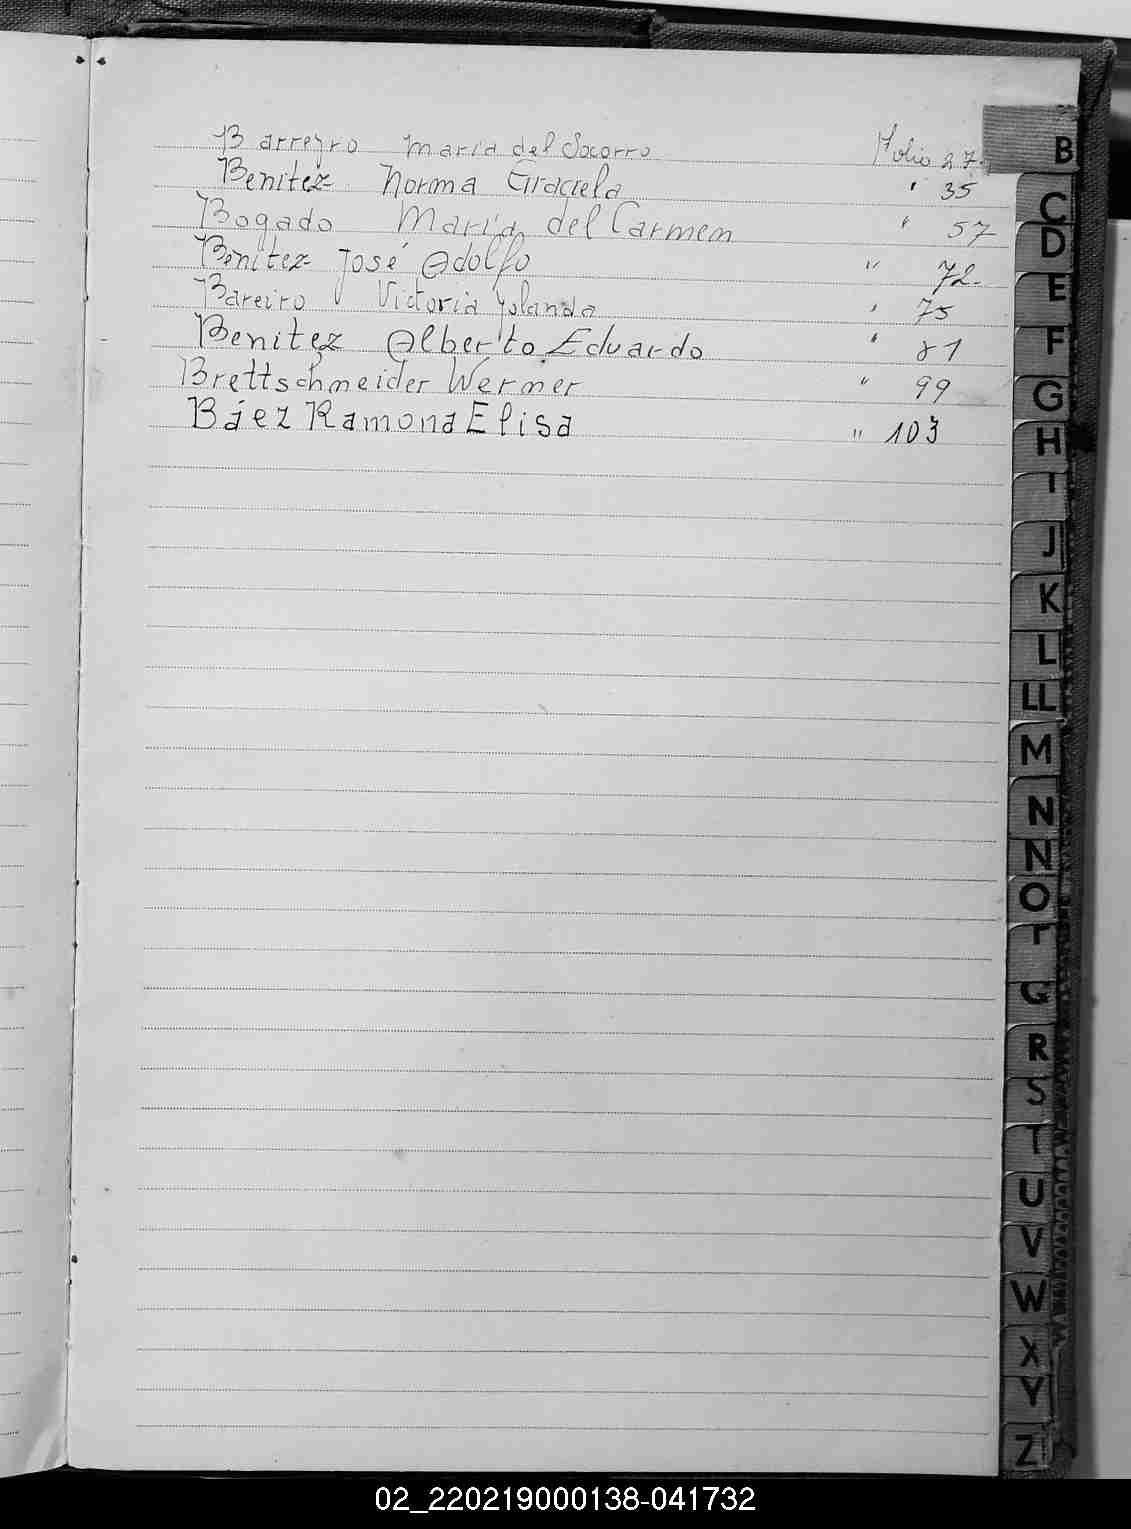 Barreyro Maria del Socorro Folio 27.
Benitez Norma Graciela " 35
Bogado María del Carmen " 57
Benitez José Adolfo " 72.
Bareiro Victoria Yolanda " 75
Benitez Alberto Eduardo " 81
Brettschneider Werner " 99
Báez Ramona Elisa " 103
B
C
D
E
F
G
H
I
J
K
L
LL
M
N
N
O
Q
R
S
T
U
V
W
X
Y
Z
02_220219000138-041732